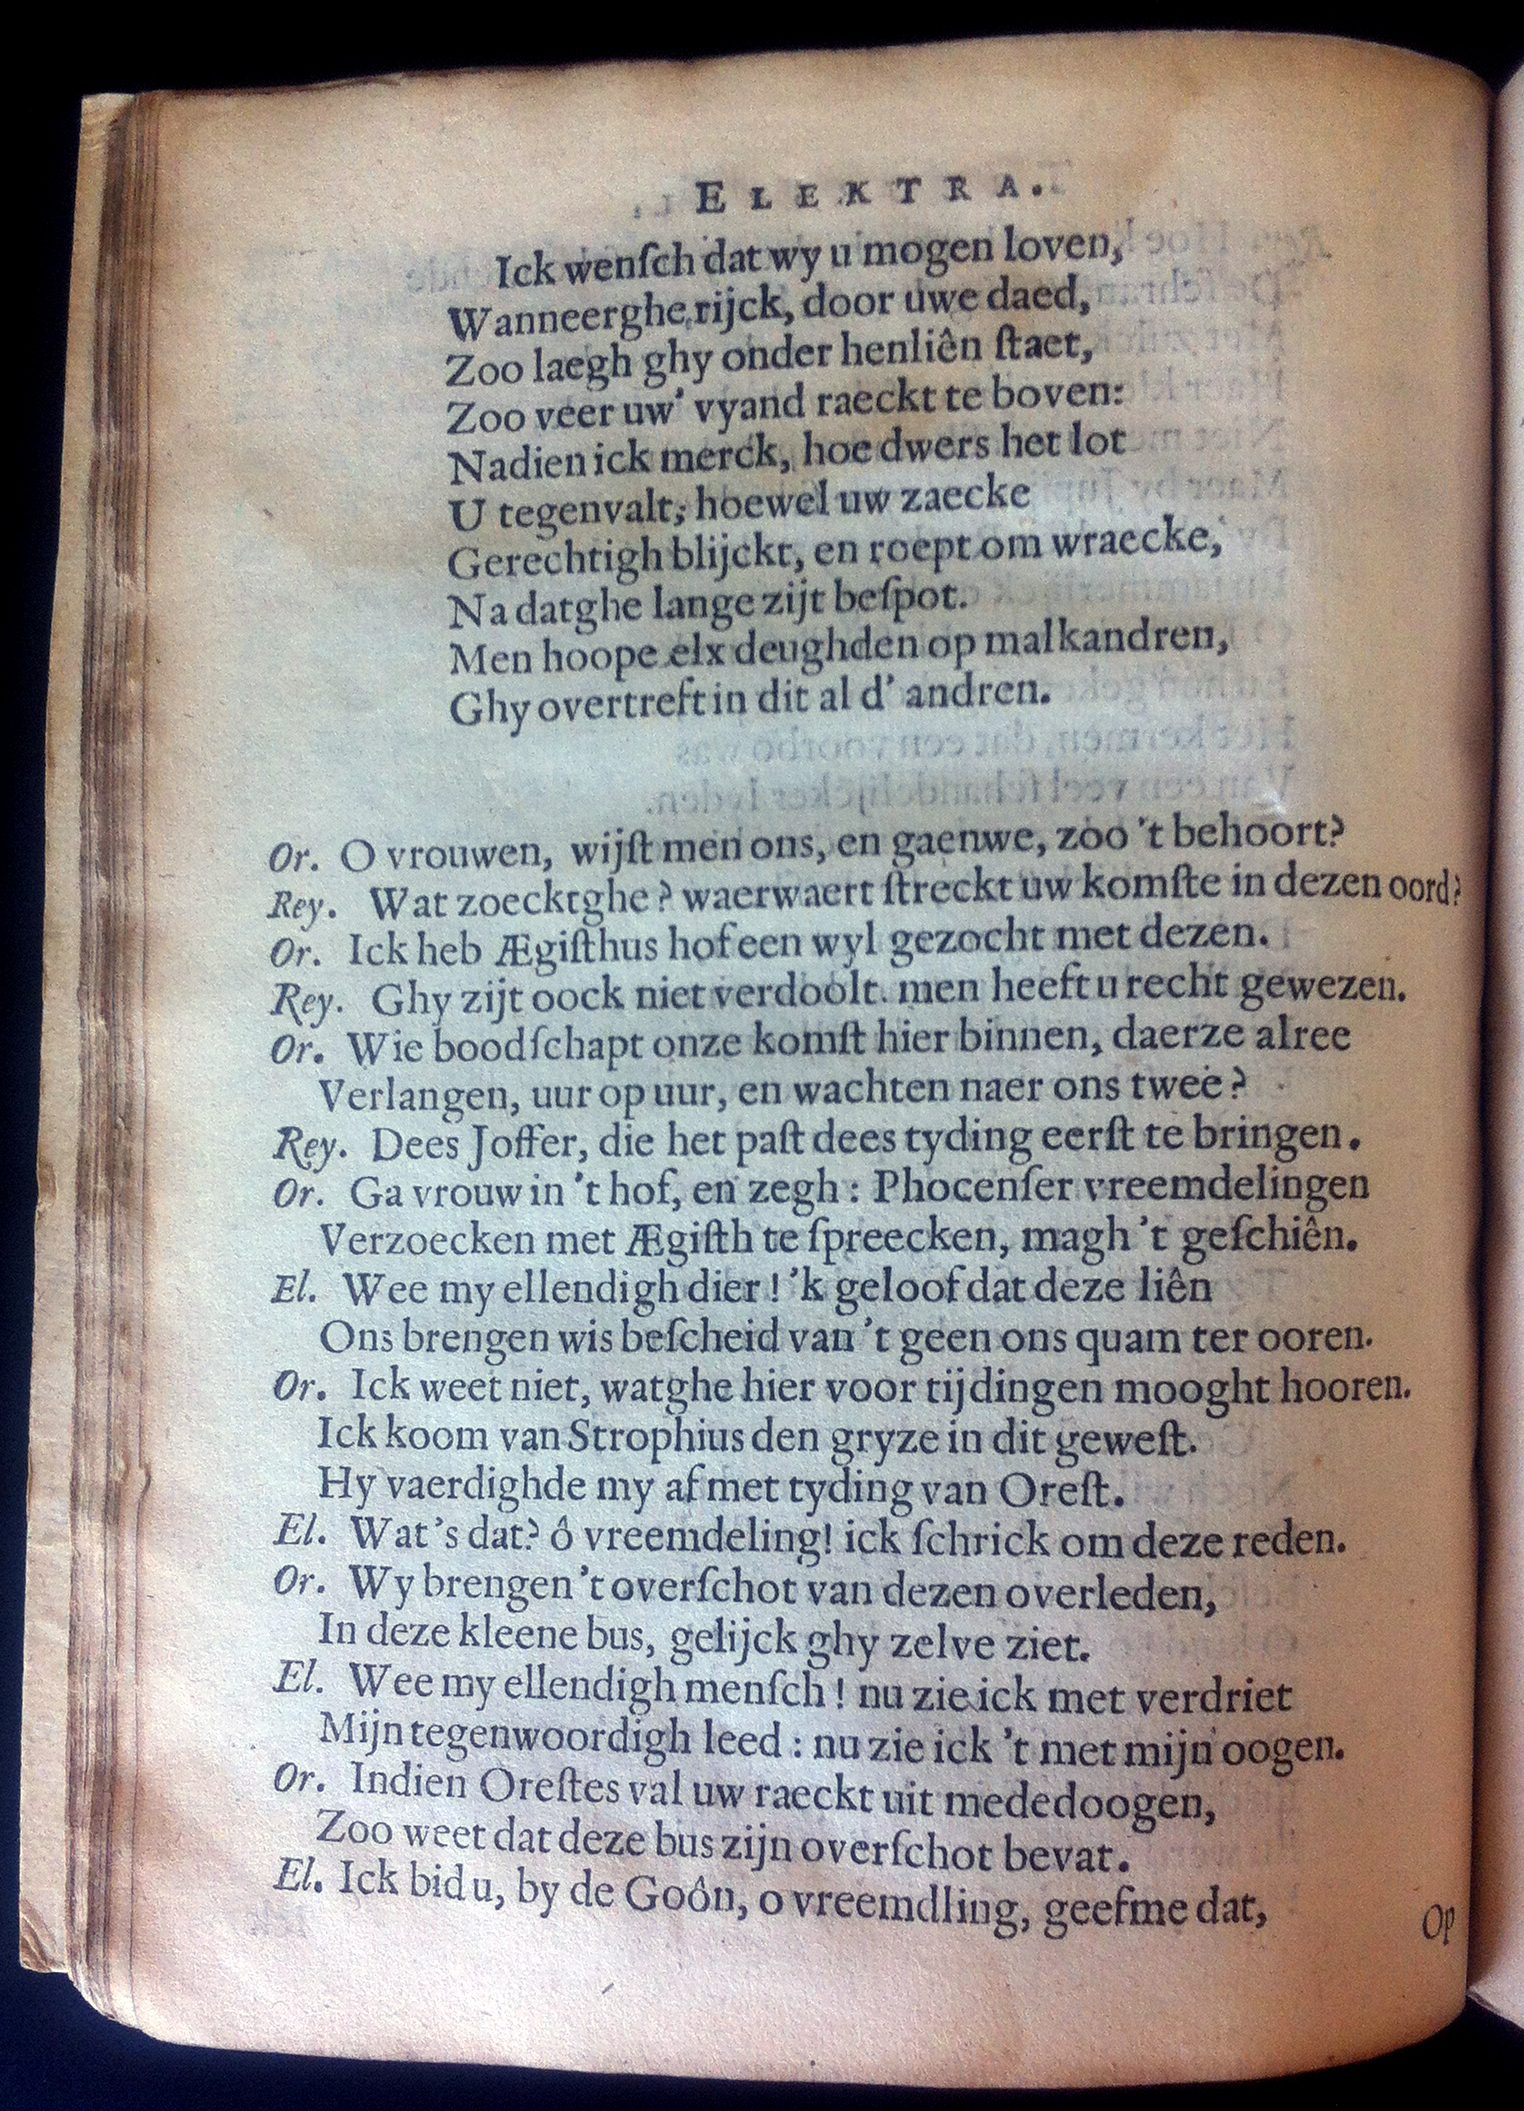 ELEKTRA.
Ick wenſch dat wy u mogen loven,
Wanneerghe rijck, door uwe daed,
Zoo laegh ghy onder henliên ſtaet,
Zoo veer uw' vyand raeckt te boven:
Nadien ick merck, hoe dwers het lot
U tegenvalt, hoewel uw zaecke
Gerechtigh blijckt, en roept om wraecke,
Na datghe lange zijt beſpot.
Men hoope elx deughden op malkandren,
Ghy overtreft in dit al d' andren.
Or. O vrouwen, wijſt men ons, en gaenwe, zoo 't behoort?
Rey. Wat zoecktghe? waerwaert ſtreckt uw komſte in dezen oord?
Or. Ick heb Ægiſthus hof een wyl gezocht met dezen.
Rey. Ghy zijt oock niet verdoolt. men heeft u recht gewezen.
Or. Wie boodſchapt onze komſt hier binnen, daerze alree
Verlangen, uur op uur, en wachten naer ons twee?
Rey. Dees Joffer, die het paſt dees tyding eerſt te bringen.
Or. Ga vrouw in 't hof, en zegh: Phocenſer vreemdelingen
Verzoecken met Ægiſth te ſpreecken, magh 't geſchiên.
El. Wee my ellendigh dier! 'k geloof dat deze liên
Ons brengen wis beſcheid van 't geen ons quam ter ooren.
Or. Ick weet niet, watghe hier voor tijdingen mooght hooren.
Ick koom van Strophius den gryze in dit geweſt.
Hy vaerdighde my af met tyding van Oreſt.
El. Wat's dat? ô vreemdeling! ick ſchrick om deze reden.
Or. Wy brengen 't overſchot van dezen overleden,
In deze kleene bus, gelijck ghy zelve ziet.
El. Wee my ellendigh menſch! nu zie ick met verdriet
Mijn tegenwoordigh leed: nu zie ick 't met mijn oogen.
Or. Indien Oreſtes val uw raeckt uit mededoogen,
Zoo weet dat deze bus zijn overſchot bevat.
El. Ick bid u, by de Goôn, o vreemdling, geefme dat,
Op